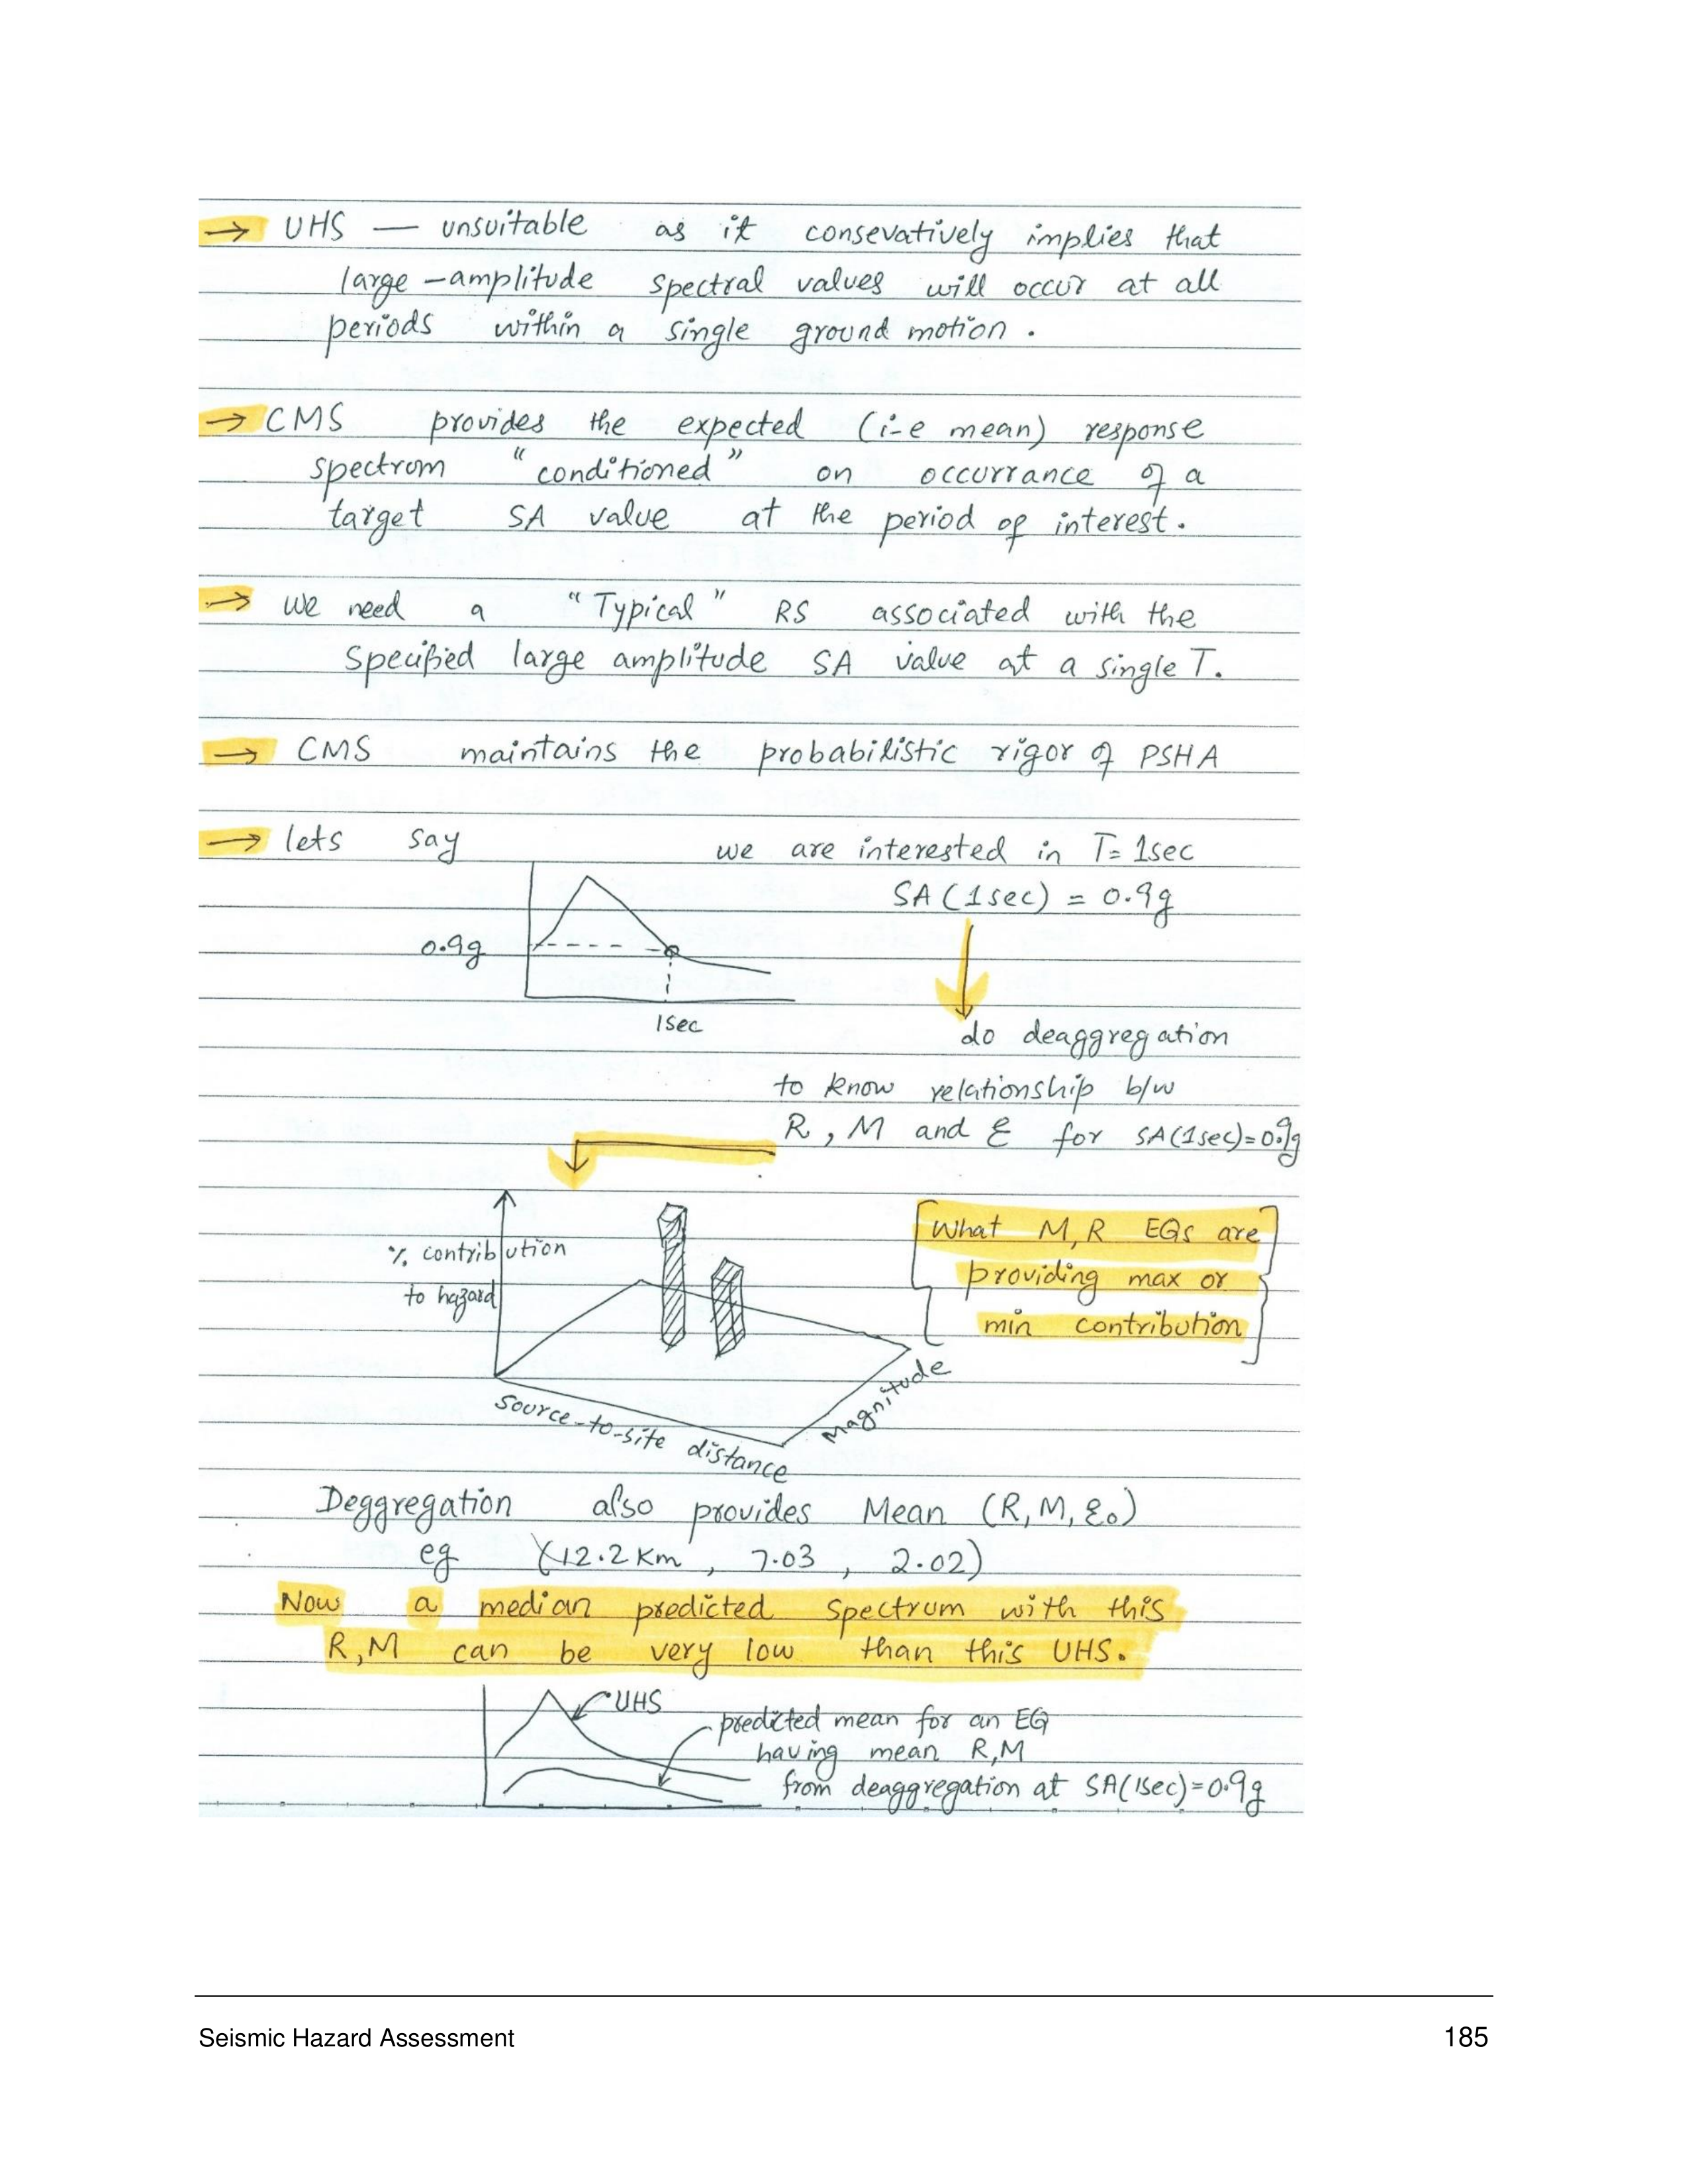 → UHS — unsuitable as it consevatively implies that
large-amplitude spectral values will occur at all
periods within a single ground motion.
→ CMS provides the expected (i-e mean) response
spectrum "conditioned" on occurrance of a
target SA value at the period of interest.
→ we need a "Typical" RS associated with the
specified large amplitude SA value at a single T.
→ CMS maintains the probabilistic rigor of PSHA
→ lets say we are interested in T= 1sec
SA (1sec) = 0.9g
0.9g
1sec
do deaggregation
to know relationship b/w
R, M and ε for SA(1sec)=0.9g
% contribution
to hazard
What M,R EQs are
providing max or
min contribution
Source-to-site distance
Magnitude
Deggregation also provides Mean (R, M, ε₀)
eg (12.2 Km, 7.03, 2.02)
Now a median predicted spectrum with this
R,M can be very low than this UHS.
UHS
predicted mean for an EQ
having mean R,M
from deaggregation at SA(1sec)=0.9g
Seismic Hazard Assessment 185